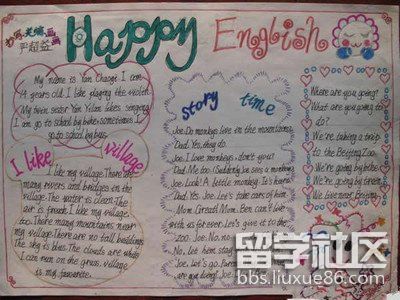 Happy English
严超益
My name is Yan Chaoyi I am
14 years old I like playing the violin
My twin sister Yan Yilan likes singing
I am go to school by bike. sometimes I
go to school by bus.
I like village
I like my village. There are
many rivers and bridges in the
village. The water is clean. The
air is fresh. I like my village
too. There many mountains near
my village. There are no tall buildings
The sky is blue. The clouds are white
I can run on the grass. village
is my favourite.
story time
Joe: Do monkeys live in the mountains
Dad: Yes, they do.
Joe: I love monkeys. don't you?
Dad: Me too. (Suddenly, Joe sees a monkey
Joe: Look! A little monkey. It's here
Dad: Yes. Joe. Let's take care of him
Mom: Great! Mom. Ben can live
with us for ever. Let's give it to the
zoo. Joe: No. No.
No. let him stay
Joe: Let's go.
are my
Where are you going?
What are you going to
do?
We're taking a trip
to the Beijing Zoo.
We're going by bike.
We're going by train.
We live next
留学社区
bbs.liuxue86.com